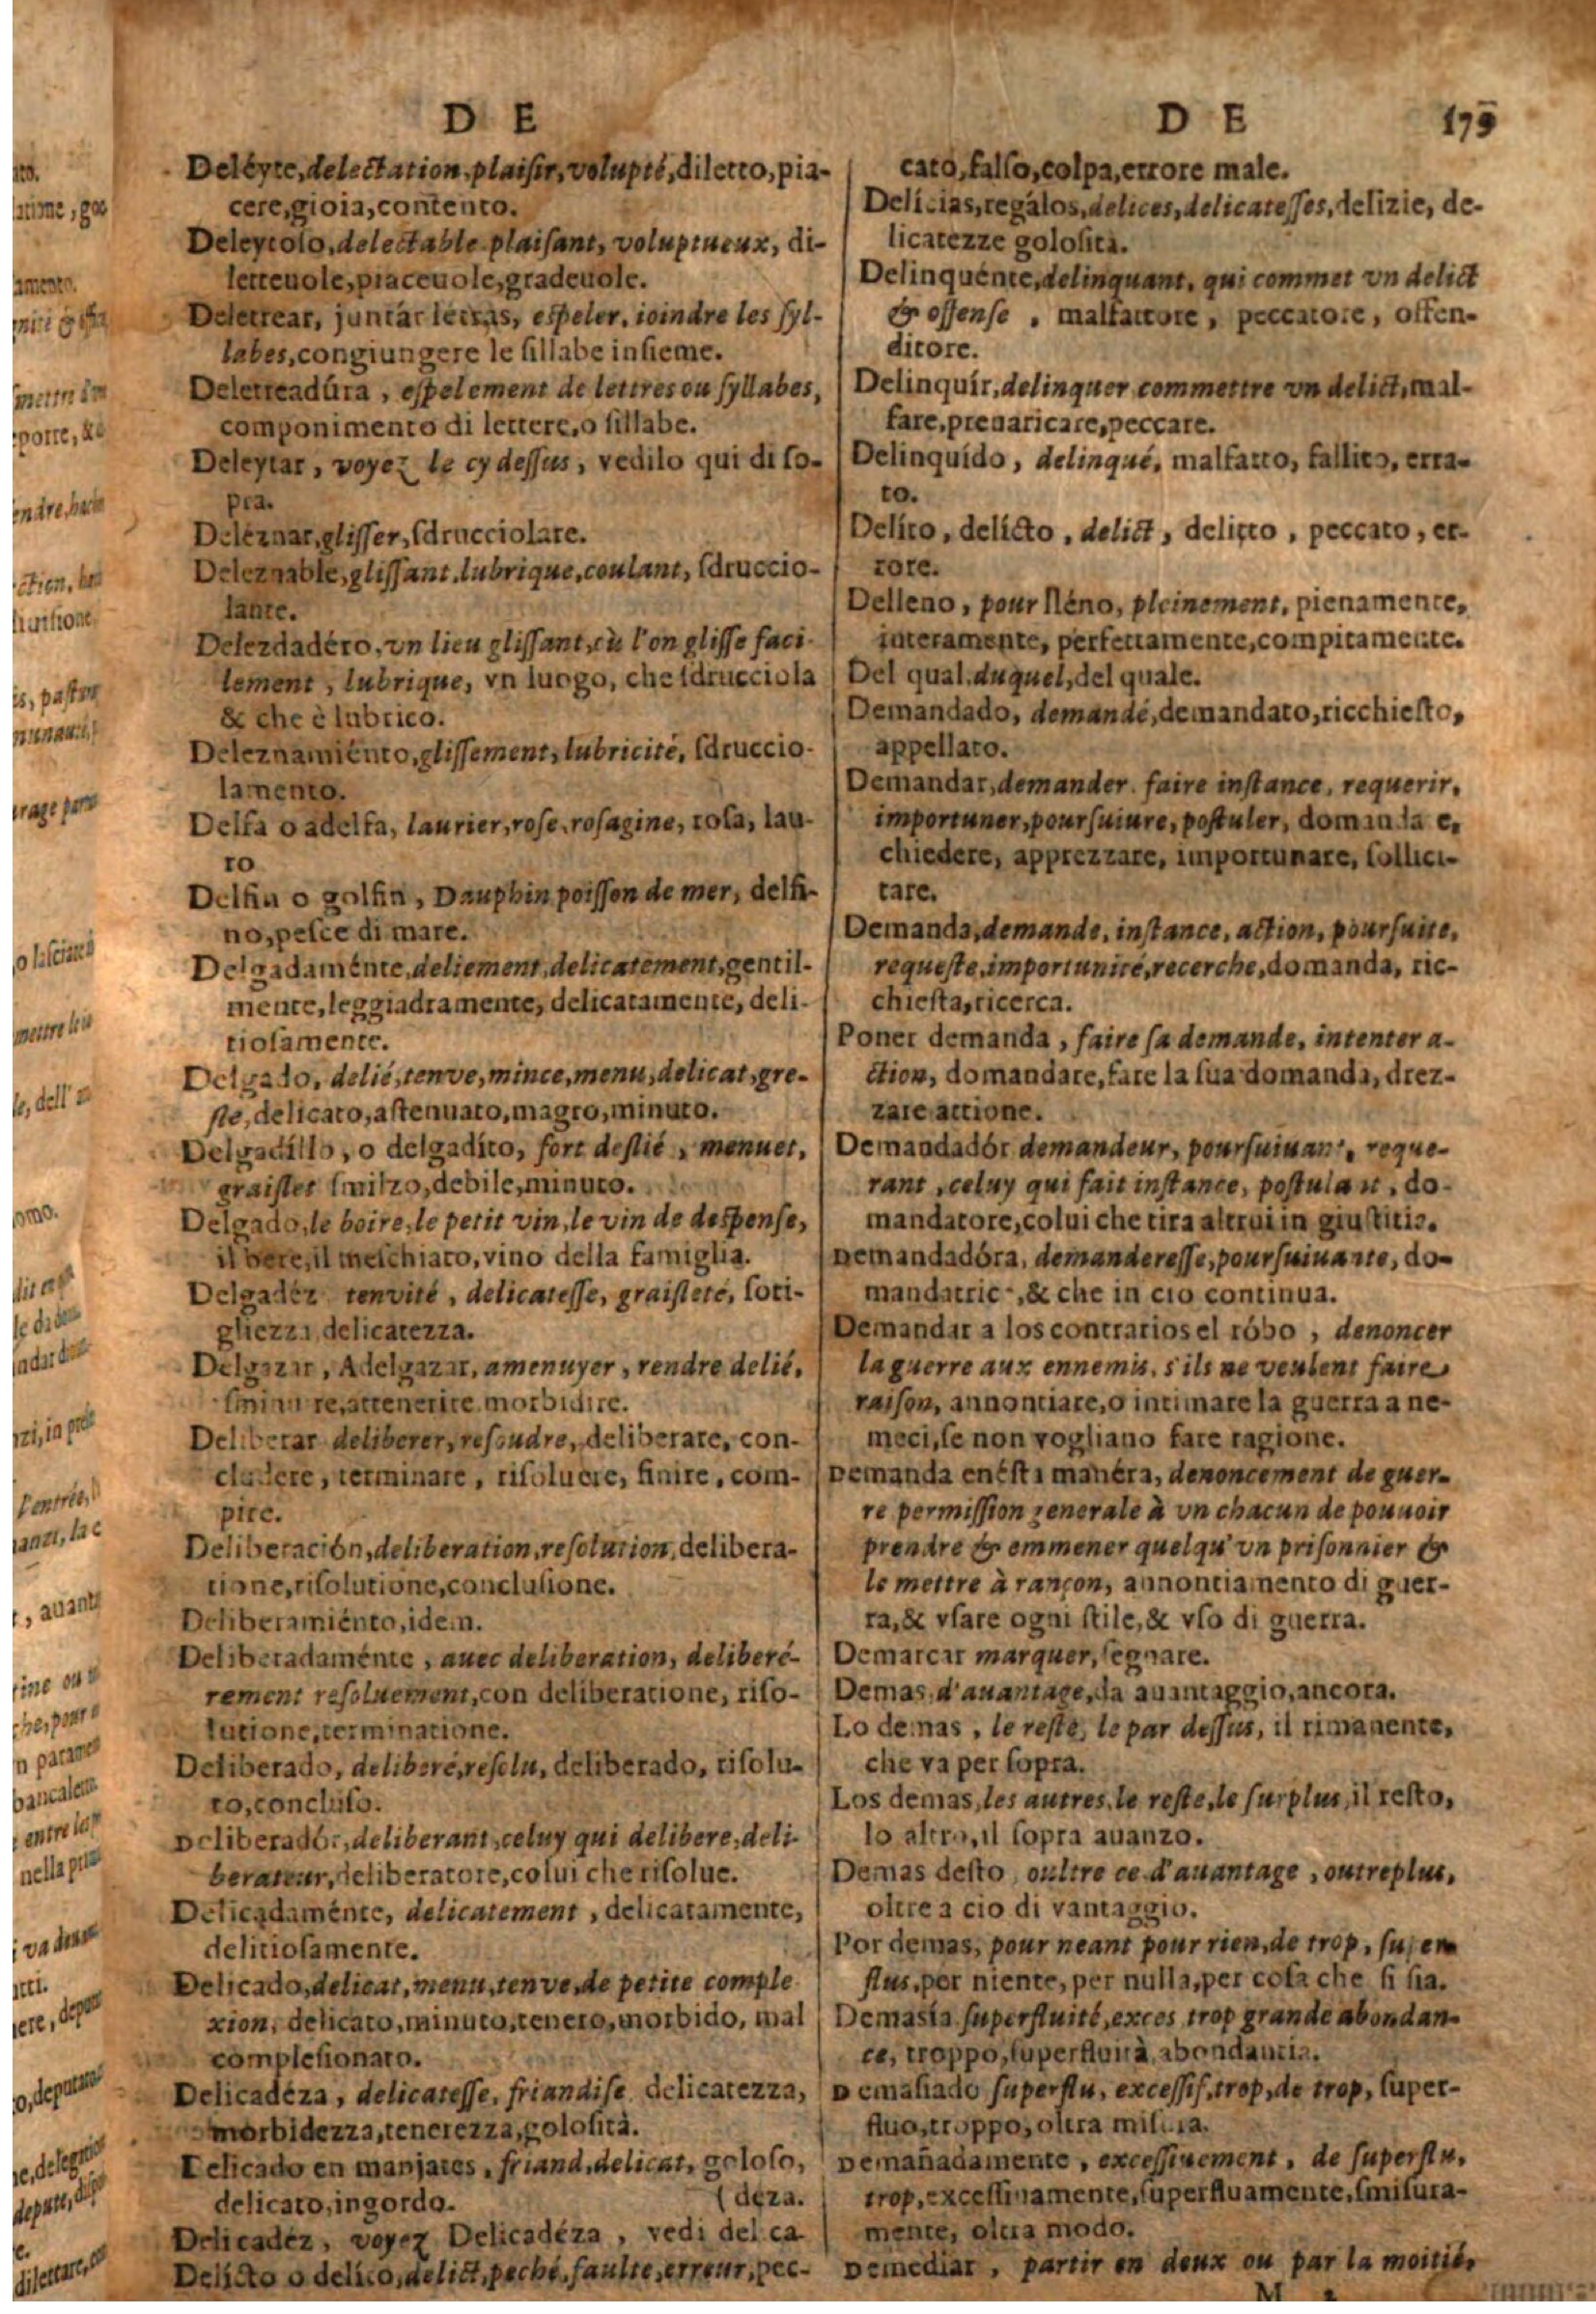 D E
Deléyte, delectation, plaisir, volupté, diletto, pia-
cere, gioia, contento.
Deleytoso, delectable plaisant, voluptueux, di-
letteuole, piaceuole, gradeuole.
Deletrear, juntár letras, espeler, ioindre les syl-
labes, congiungere le sillabe insieme.
Deletreadûra, espelement de lettres ou syllabes,
componimento di lettere, o sillabe.
Deleytar, voyez le cy dessus, vedilo qui di so-
pra.
Deleznar, glisser, sdrucciolare.
Deleznable, glissant, lubrique, coulant, sdruccio-
lante.
Delezdadéro, vn lieu glissant, où l'on glisse faci-
lement, lubrique, vn luogo, che sdrucciola
& che è lubrico.
Deleznamiénto, glissement, lubricité, sdruccio-
lamento.
Delfa o adelfa, laurier, rose, rosagine, rosa, lau-
ro
Delfin o golfin, Dauphin poisson de mer, delfi-
no, pesce di mare.
Delgadaménte, deliement, delicatement, gentil-
mente, leggiadramente, delicatamente, deli-
tiosamente.
Delgado, delié, tenve, mince, menu, delicat, gre-
sle, delicato, astenuato, magro, minuto.
Delgadíllo, o delgadíto, fort deslié, menuet,
graislet smilzo, debile, minuto.
Delgado, le boire, le petit vin, le vin de despense,
il bere, il meschiato, vino della famiglia.
Delgadéz tenvité, delicatesse, graisleté, soti-
gliezza delicatezza.
Delgazar, Adelgazar, amenuyer, rendre delié,
sminuire, attenerire morbidire.
Deliberar deliberer, resoudre, deliberare, con-
cludere, terminare, risoluere, finire, com-
pire.
Deliberación, deliberation, resolution, delibera-
tione, risolutione, conclusione.
Deliberamiénto, idem.
Deliberadaménte, auec deliberation, deliberé-
rement resoluement, con deliberatione, riso-
lutione, terminatione.
Deliberado, deliberé, resolu, deliberado, risolu-
to, concluso.
Deliberadór, deliberant, celuy qui delibere, deli-
berateur, deliberatore, colui che risolue.
Delicadaménte, delicatement, delicatamente,
delitiosamente.
Delicado, delicat, menu, tenve, de petite comple
xion, delicato, minuto, tenero, morbido, mal
complesionato.
Delicadéza, delicatesse, friandise delicatezza,
morbidezza, tenerezza, golosità.
Delicado en manjares, friand, delicat, goloso,
delicato, ingordo. (deza.
Delicadéz, voyez Delicadéza, vedi delica
Delícto o delíto, delict, peché, faulte, erreur, pec-
D E 179
cato, falso, colpa, errore male.
Delícias, regálos, delices, delicatesses, delizie, de-
licatezze golosità.
Delinquénte, delinquant, qui commet vn delict
& offense, malfattore, peccatore, offen-
ditore.
Delinquír, delinquer commettre vn delict, mal-
fare, preuaricare, peccare.
Delinquído, delinqué, malfatto, fallito, erra-
to.
Delíto, delícto, delict, delitto, peccato, er-
rore.
Delleno, pour lléno, pleinement, pienamente,
interamente, perfettamente, compitamente.
Del qual, duquel, del quale.
Demandado, demandé, demandato, ricchiesto,
appellato.
Demandar, demander faire instance, requerir,
importuner, poursuiure, postuler, domandare,
chiedere, apprezzare, importunare, sollici-
tare.
Demanda, demande, instance, action, poursuite,
requeste, importunité, recerche, domanda, ric-
chiesta, ricerca.
Poner demanda, faire sa demande, intenter a-
ction, domandare, fare la sua domanda, drez-
zare attione.
Demandadór demandeur, poursuiuant, reque-
rant, celuy qui fait instance, postulant, do-
mandatore, colui che tira altrui in giustitia.
Demandadóra, demanderesse, poursuiuante, do-
mandatrice, & che in cio continua.
Demandar a los contrarios el róbo, denoncer
la guerre aux ennemis, s'ils ne veulent faire
raison, annontiare, o intimare la guerra a ne-
meci, se non vogliano fare ragione.
Demanda enésta manéra, denoncement de guer-
re permission generale à vn chacun de pouuoir
prendre & emmener quelqu'vn prisonnier &
le mettre à rançon, annontiamento di guer-
ra, & vsare ogni stile, & vso di guerra.
Demarcar marquer, segnare.
Demas, d'auantage, da auantaggio, ancora.
Lo demas, le reste, le par dessus, il rimanente,
che va per sopra.
Los demas, les autres, le reste, le surplus, il resto,
lo altro, il sopra auanzo.
Demas desto, oultre ce d'auantage, outreplus,
oltre a cio di vantaggio.
Por demas, pour neant pour rien, de trop, super
flus, per niente, per nulla, per cosa che si sia.
Demasía superfluité, exces trop grande abondan-
ce, troppo, superfluità, abondantia.
Demasiado superflu, excessif, trop, de trop, super-
fluo, troppo, oltra misura.
Demañadamente, excessiuement, de superflu,
trop, excessiuamente, superfluamente, smisura-
mente, oltra modo.
Demediar, partir en deux ou par la moitié,